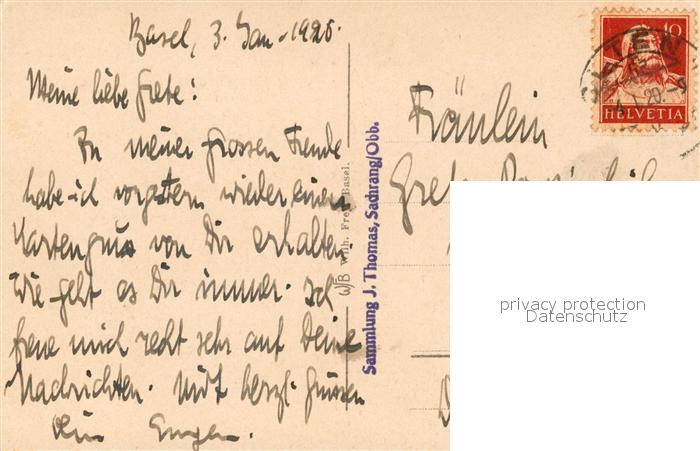 Basel, 3. Jan. 1920.
Meine liebe Grete!
Zu meiner grossen Freude
habe ich vorgestern wieder einen
Kartengruss von Dir erhalten.
Wie geht es Dir immer. Ich
freue mich recht sehr auf Deine
Nachrichten. Mit herzl. Grüssen
Dein Eugen.
W/B Wilh. Frey, Basel.
Sammlung J. Thomas, Sachrang/Obb.
10
HELVETIA
OLTEN
Fräulein
Grete
privacy protection
Datenschutz